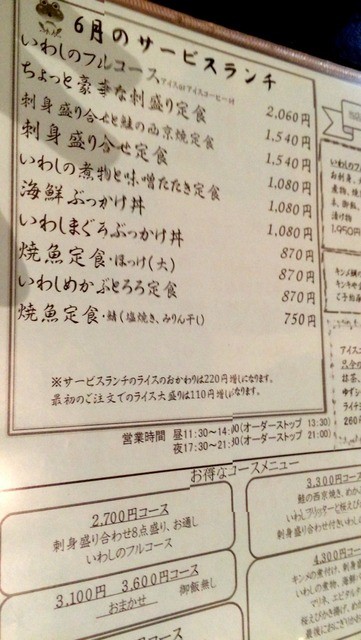 6月のサービスランチ
いわしのフルコース アイスorアイスコーヒー付 2,060円
ちょっと豪華な刺盛り定食 1,540円
刺身盛り合せと鮭の西京焼定食 1,540円
刺身盛り合せ定食 1,080円
いわしの煮物と味噌たたき定食 1,080円
海鮮ぶっかけ丼 1,080円
いわしまぐろぶっかけ丼 870円
焼魚定食・ほっけ(大) 870円
いわしめかぶとろろ定食 870円
焼魚定食・鯖(塩焼き、みりん干し) 750円
※サービスランチのライスのおかわりは220円増しになります。
最初のご注文でのライス大盛りは110円増しになります。
営業時間 昼11:30~14:00(オーダーストップ 13:30)
夜17:30~21:30(オーダーストップ 21:00)
お得なコースメニュー
2,700円コース
刺身盛り合わせ8点盛り、お通し
いわしのフルコース
3,100円 3,600円コース
おまかせ 御飯無し
3,300円コース
鮭の西京焼き、めか
いわしフリッターと桜えび
刺身盛り合わせ付きいわ
4,300円コー
キンメの煮付け、刺身盛
いわしの煮物、海鮮
マリネ、エビタルタ
桜えびかき揚げ、
最後におにぎり
1,950円
アイス
抹茶
ゆずシ
ライチ
260円